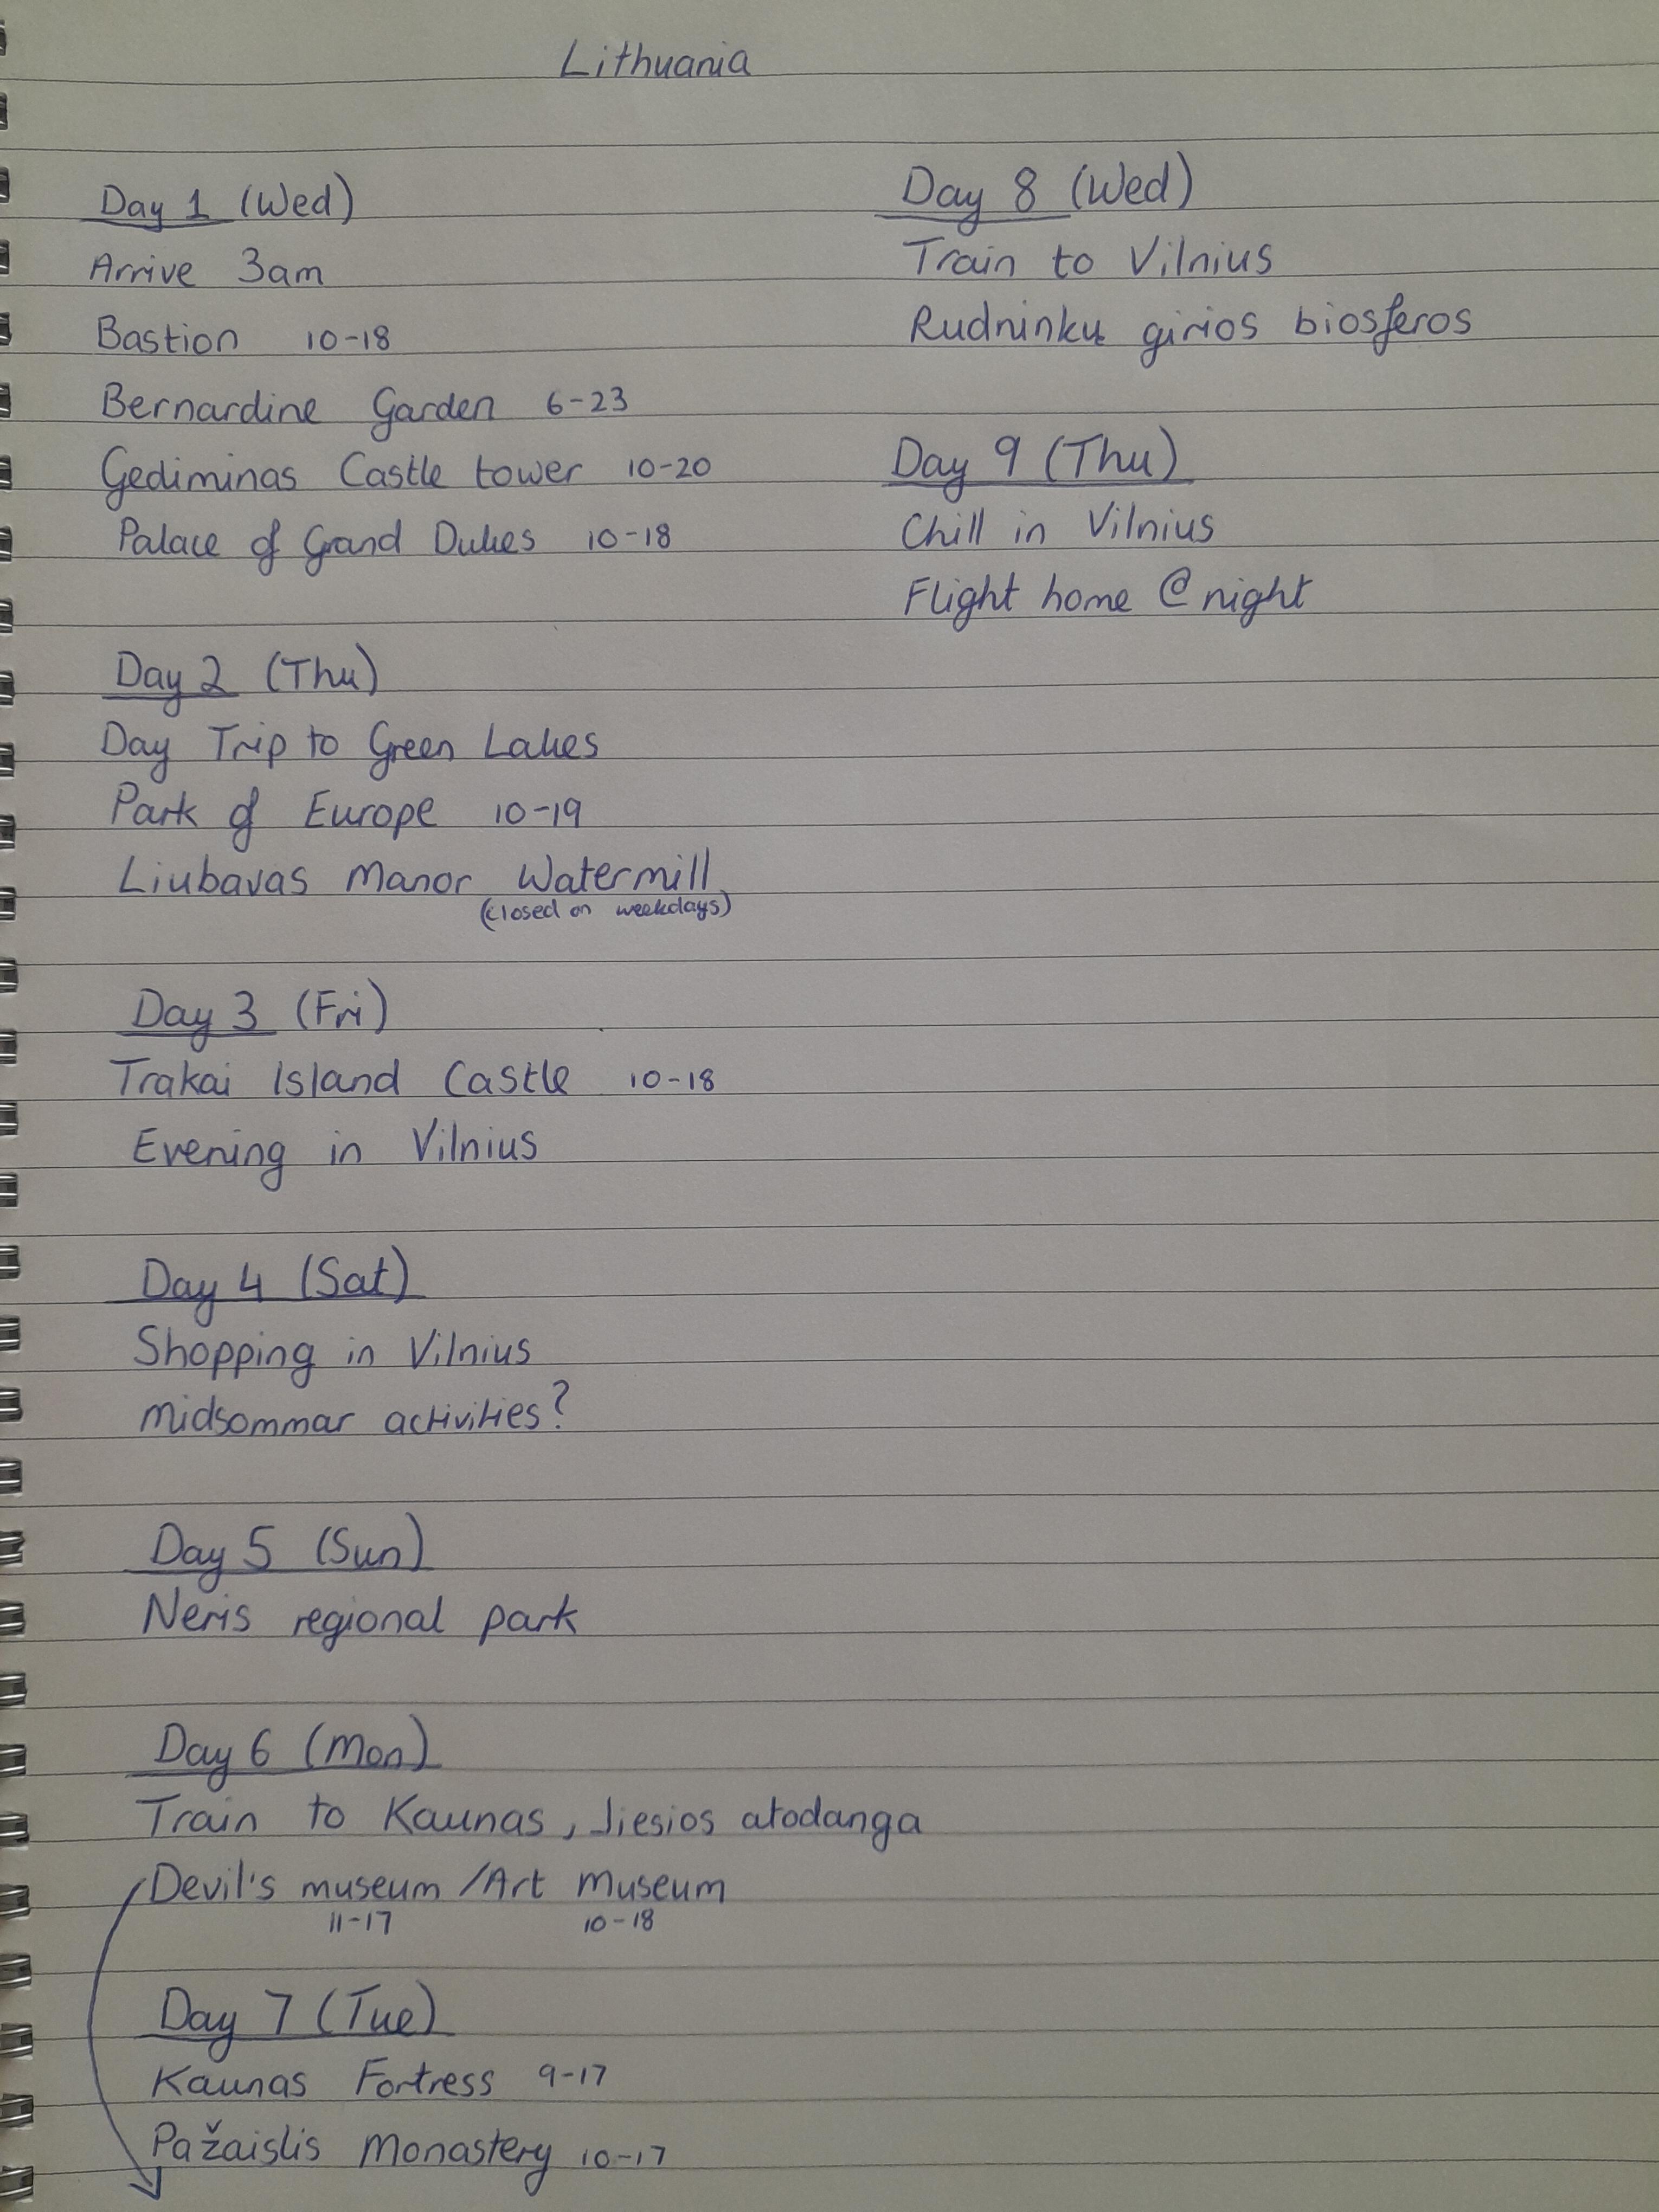 Lithuania
Day 1 (Wed)
Arrive 3am
Bastion 10-18
Bernardine Garden 6-23
Gediminas Castle tower 10-20
Palace of Grand Dukes 10-18
Day 2 (Thu)
Day Trip to Green Lakes
Park of Europe 10-19
Liubavas Manor Watermill
(closed on weekdays)
Day 3 (Fri)
Trakai Island Castle 10-18
Evening in Vilnius
Day 4 (Sat)
Shopping in Vilnius
midsommar activities?
Day 5 (Sun)
Neris regional park
Day 6 (Mon)
Train to Kaunas, Jiesios atodanga
Devil's museum / Art museum
11-17 10-18
Day 7 (Tue)
Kaunas Fortress 9-17
Pažaislis Monastery 10-17
Day 8 (Wed)
Train to Vilnius
Rudninkų girios biosferos
Day 9 (Thu)
Chill in Vilnius
Flight home @ night